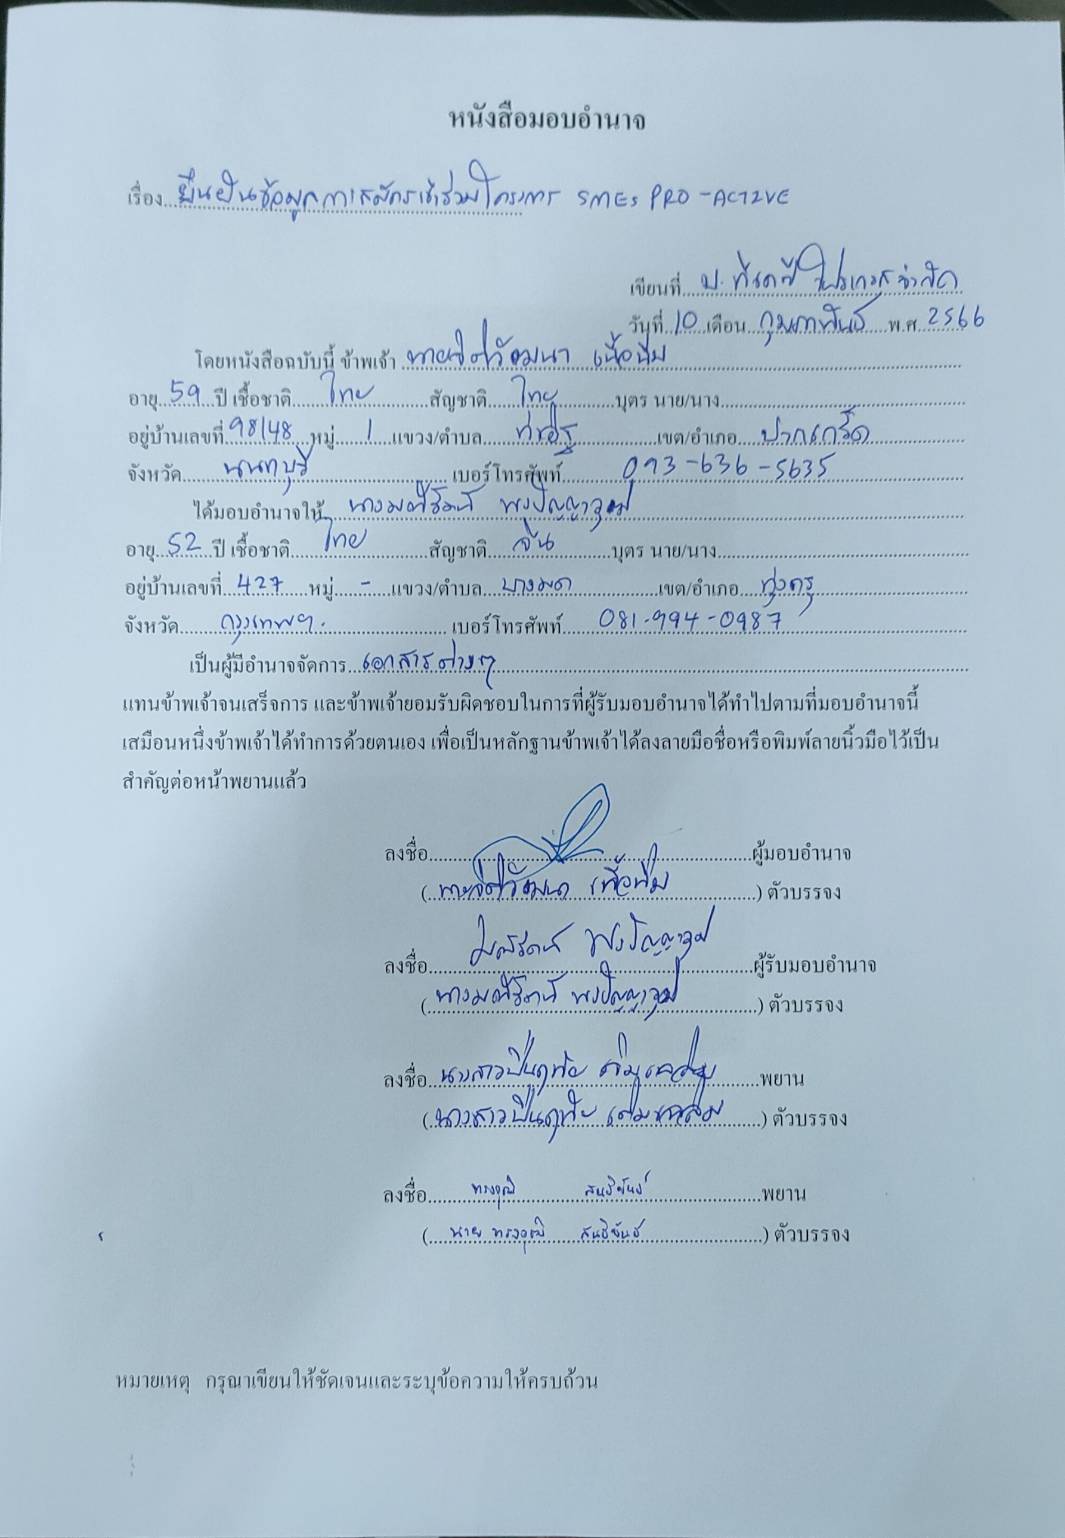 หนังสือมอบอำนาจ
เรื่อง ยืนยันข้อมูลการสมัครเข้าร่วมโครงการ SMEs PRO-ACTIVE
เขียนที่ บ. จำกัด
วันที่ 10 เดือน กุมภาพันธ์ พ.ศ 2566
โดยหนังสือฉบับนี้ ข้าพเจ้า เนื้อนิ่ม
อายุ 59 ปี เชื้อชาติ ไทย สัญชาติ ไทย บุตร นาย/นาง
อยู่บ้านเลขที่ 98/48 หมู่ 1 แขวง/ตำบล ท่าอิฐ เขต/อำเภอ ปากเกร็ด
จังหวัด นนทบุรี เบอร์โทรศัพท์ 093-636-5635
ได้มอบอำนาจให้ นางมณีรัตน์ พงปัญญาวุฒิ
อายุ 52 ปี เชื้อชาติ ไทย สัญชาติ จีน บุตร นาย/นาง
อยู่บ้านเลขที่ 427 หมู่ - แขวง/ตำบล บางมด เขต/อำเภอ ทุ่งครุ
จังหวัด กรุงเทพฯ. เบอร์โทรศัพท์ 081-994-0987
เป็นผู้มีอำนาจจัดการ เอกสารต่างๆ
แทนข้าพเจ้าจนเสร็จการ และข้าพเจ้ายอมรับผิดชอบในการที่ผู้รับมอบอำนาจได้ทำไปตามที่มอบอำนาจนี้
เสมือนหนึ่งข้าพเจ้าได้ทำการด้วยตนเอง เพื่อเป็นหลักฐานข้าพเจ้าได้ลงลายมือชื่อหรือพิมพ์ลายนิ้วมือไว้เป็น
สำคัญต่อหน้าพยานแล้ว
ลงชื่อ ผู้มอบอำนาจ
( เนื้อนิ่ม ) ตัวบรรจง
ลงชื่อ มณีรัตน์ พงปัญญาวุฒิ ผู้รับมอบอำนาจ
( นางมณีรัตน์ พงปัญญาวุฒิ ) ตัวบรรจง
ลงชื่อ นางสาวปิ่นฤทัย พยาน
( นางสาวปิ่นฤทัย ) ตัวบรรจง
ลงชื่อ ทรงวุฒิ สนธิขันธ์ พยาน
( นาย ทรงวุฒิ สนธิขันธ์ ) ตัวบรรจง
หมายเหตุ กรุณาเขียนให้ชัดเจนและระบุข้อความให้ครบถ้วน